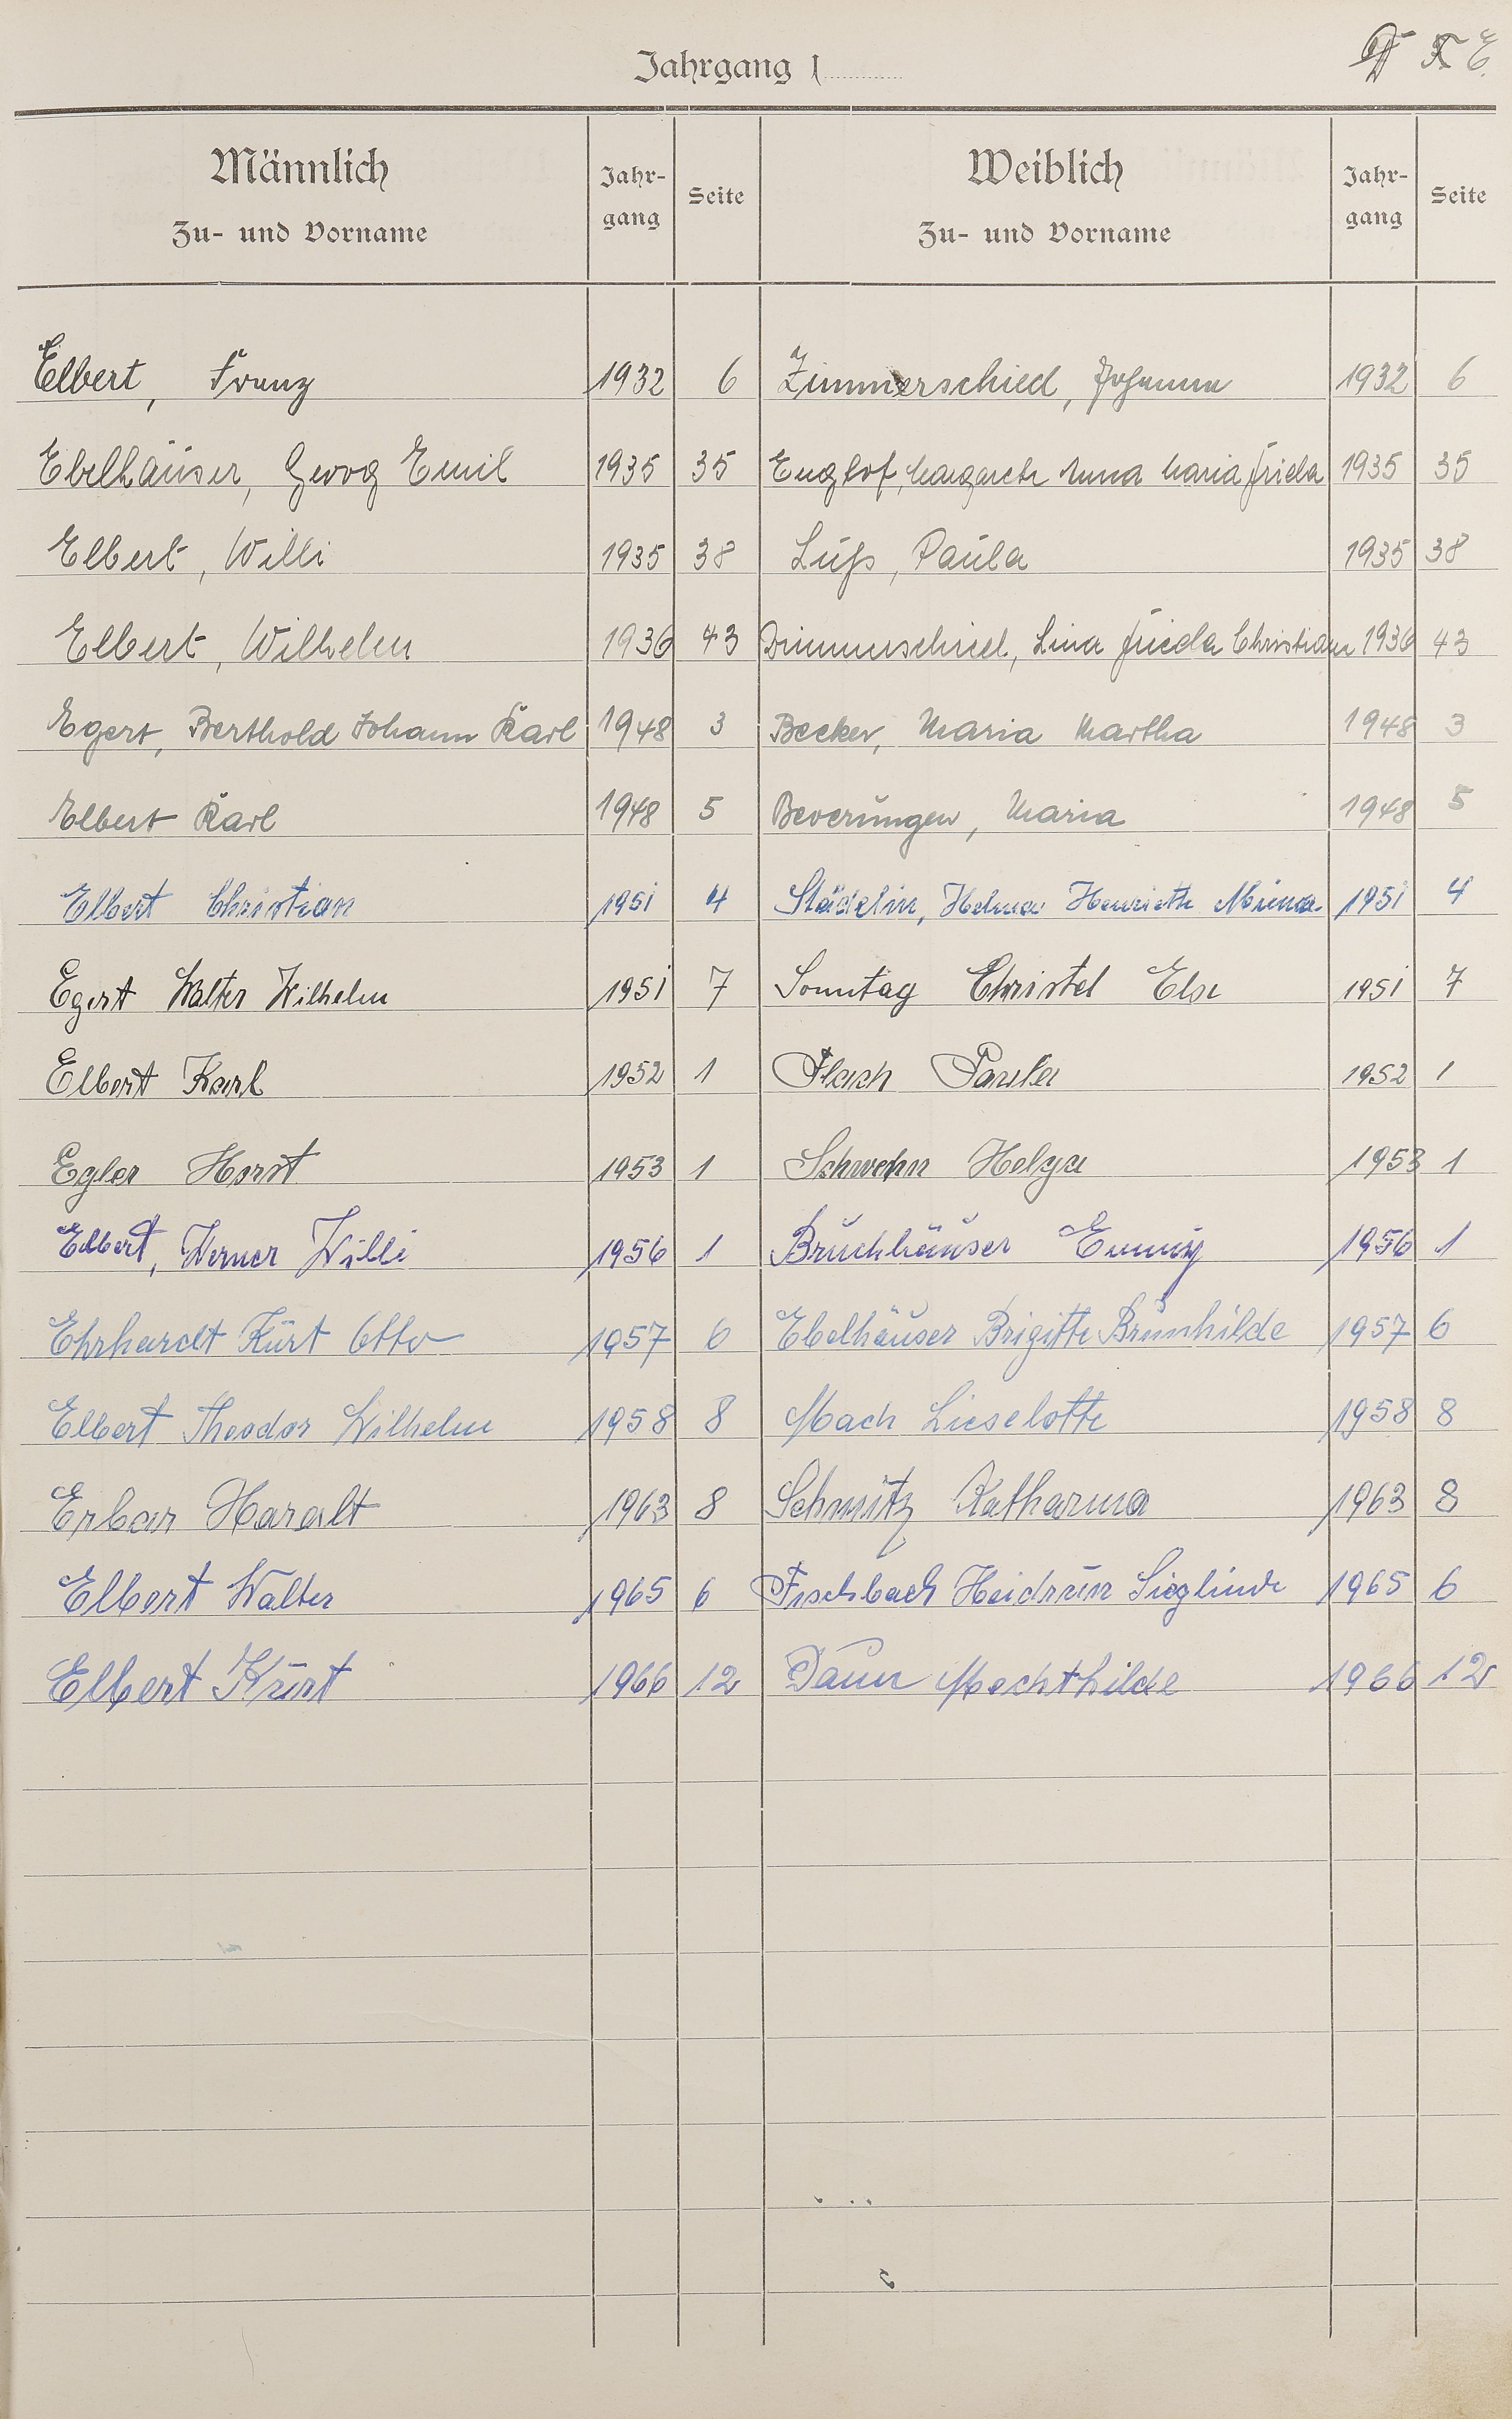 Jahrgang 1
E.
Männlich
Zu- und Vorname
Jahr-
gang
Seite
Weiblich
Zu- und Vorname
Jahr-
gang
Seite
Elbert, Franz 1932 6 Zimmerschied, Johanna 1932 6
Ebelhäuser, Georg Emil 1935 35 Enghof, Margarete Anna Maria Frieda 1935 35
Elbert, Willi 1935 38 Paula 1935 38
Elbert, Wilhelm 1936 43 Lina Frieda Christian 1936 43
Egert, Berthold Johann Karl 1948 3 Becker, Maria Martha 1948 3
Elbert Karl 1948 5 Beverungen, Maria 1948 5
Elbert Christian 1951 4 Städelin, Helma Henriette Minna 1951 4
Egert Walter Wilhelm 1951 7 Sonntag Christel Else 1951 7
Elbert Karl 1952 1 Flach Paula 1952 1
Egler Horst 1953 1 Schwehn Helga 1953 1
Elbert, Werner Willi 1956 1 Bruchhäuser Emmy 1956 1
Ehrhardt Kurt Otto 1957 6 Ebelhäuser Brigitte Brunhilde 1957 6
Elbert Theodor Wilhelm 1958 8 Mach Lieselotte 1958 8
Erbar Haralt 1963 8 Schmitz Katharina 1963 8
Elbert Walter 1965 6 Fischbach Heidrun Sieglinde 1965 6
Elbert Kurt 1966 12 Daum Mechthilde 1966 12